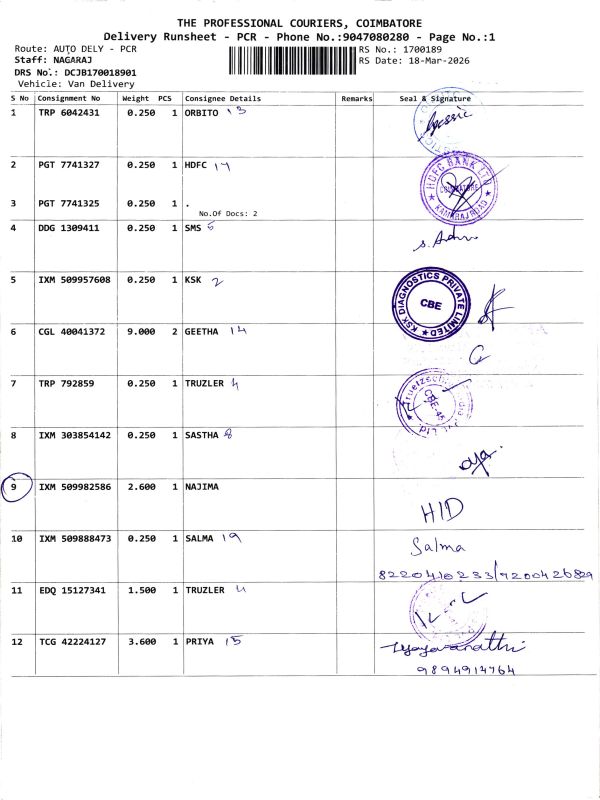 THE PROFESSIONAL COURIERS, COIMBATORE
Delivery Runsheet - PCR - Phone No.:9047080280 - Page No.:1
Route: AUTO DELY - PCR RS No.: 1700189
Staff: NAGARAJ RS Date: 18-Mar-2026
DRS No.: DCJB170018901
Vehicle: Van Delivery
S No Consignment No Weight PCS Consignee Details Remarks Seal & Signature
1 TRP 6042431 0.250 1 ORBITO 13
2 PGT 7741327 0.250 1 HDFC 14
HDFC BANK LTD
COIMBATORE
KAMARAJ ROAD
3 PGT 7741325 0.250 1 .
No.Of Docs: 2
4 DDG 1309411 0.250 1 SMS 5
5 IXM 509957608 0.250 1 KSK 2
KSK DIAGNOSTICS PRIVATE LIMITED
CBE
6 CGL 40041372 9.000 2 GEETHA 14
G
7 TRP 792859 0.250 1 TRUZLER 4
CBE-45
8 IXM 303854142 0.250 1 SASTHA 8
9 IXM 509982586 2.600 1 NAJIMA
HID
10 IXM 509888473 0.250 1 SALMA 19
Salma
8220410233/7200426829
11 EDQ 15127341 1.500 1 TRUZLER 4
12 TCG 42224127 3.600 1 PRIYA 15
9894914764